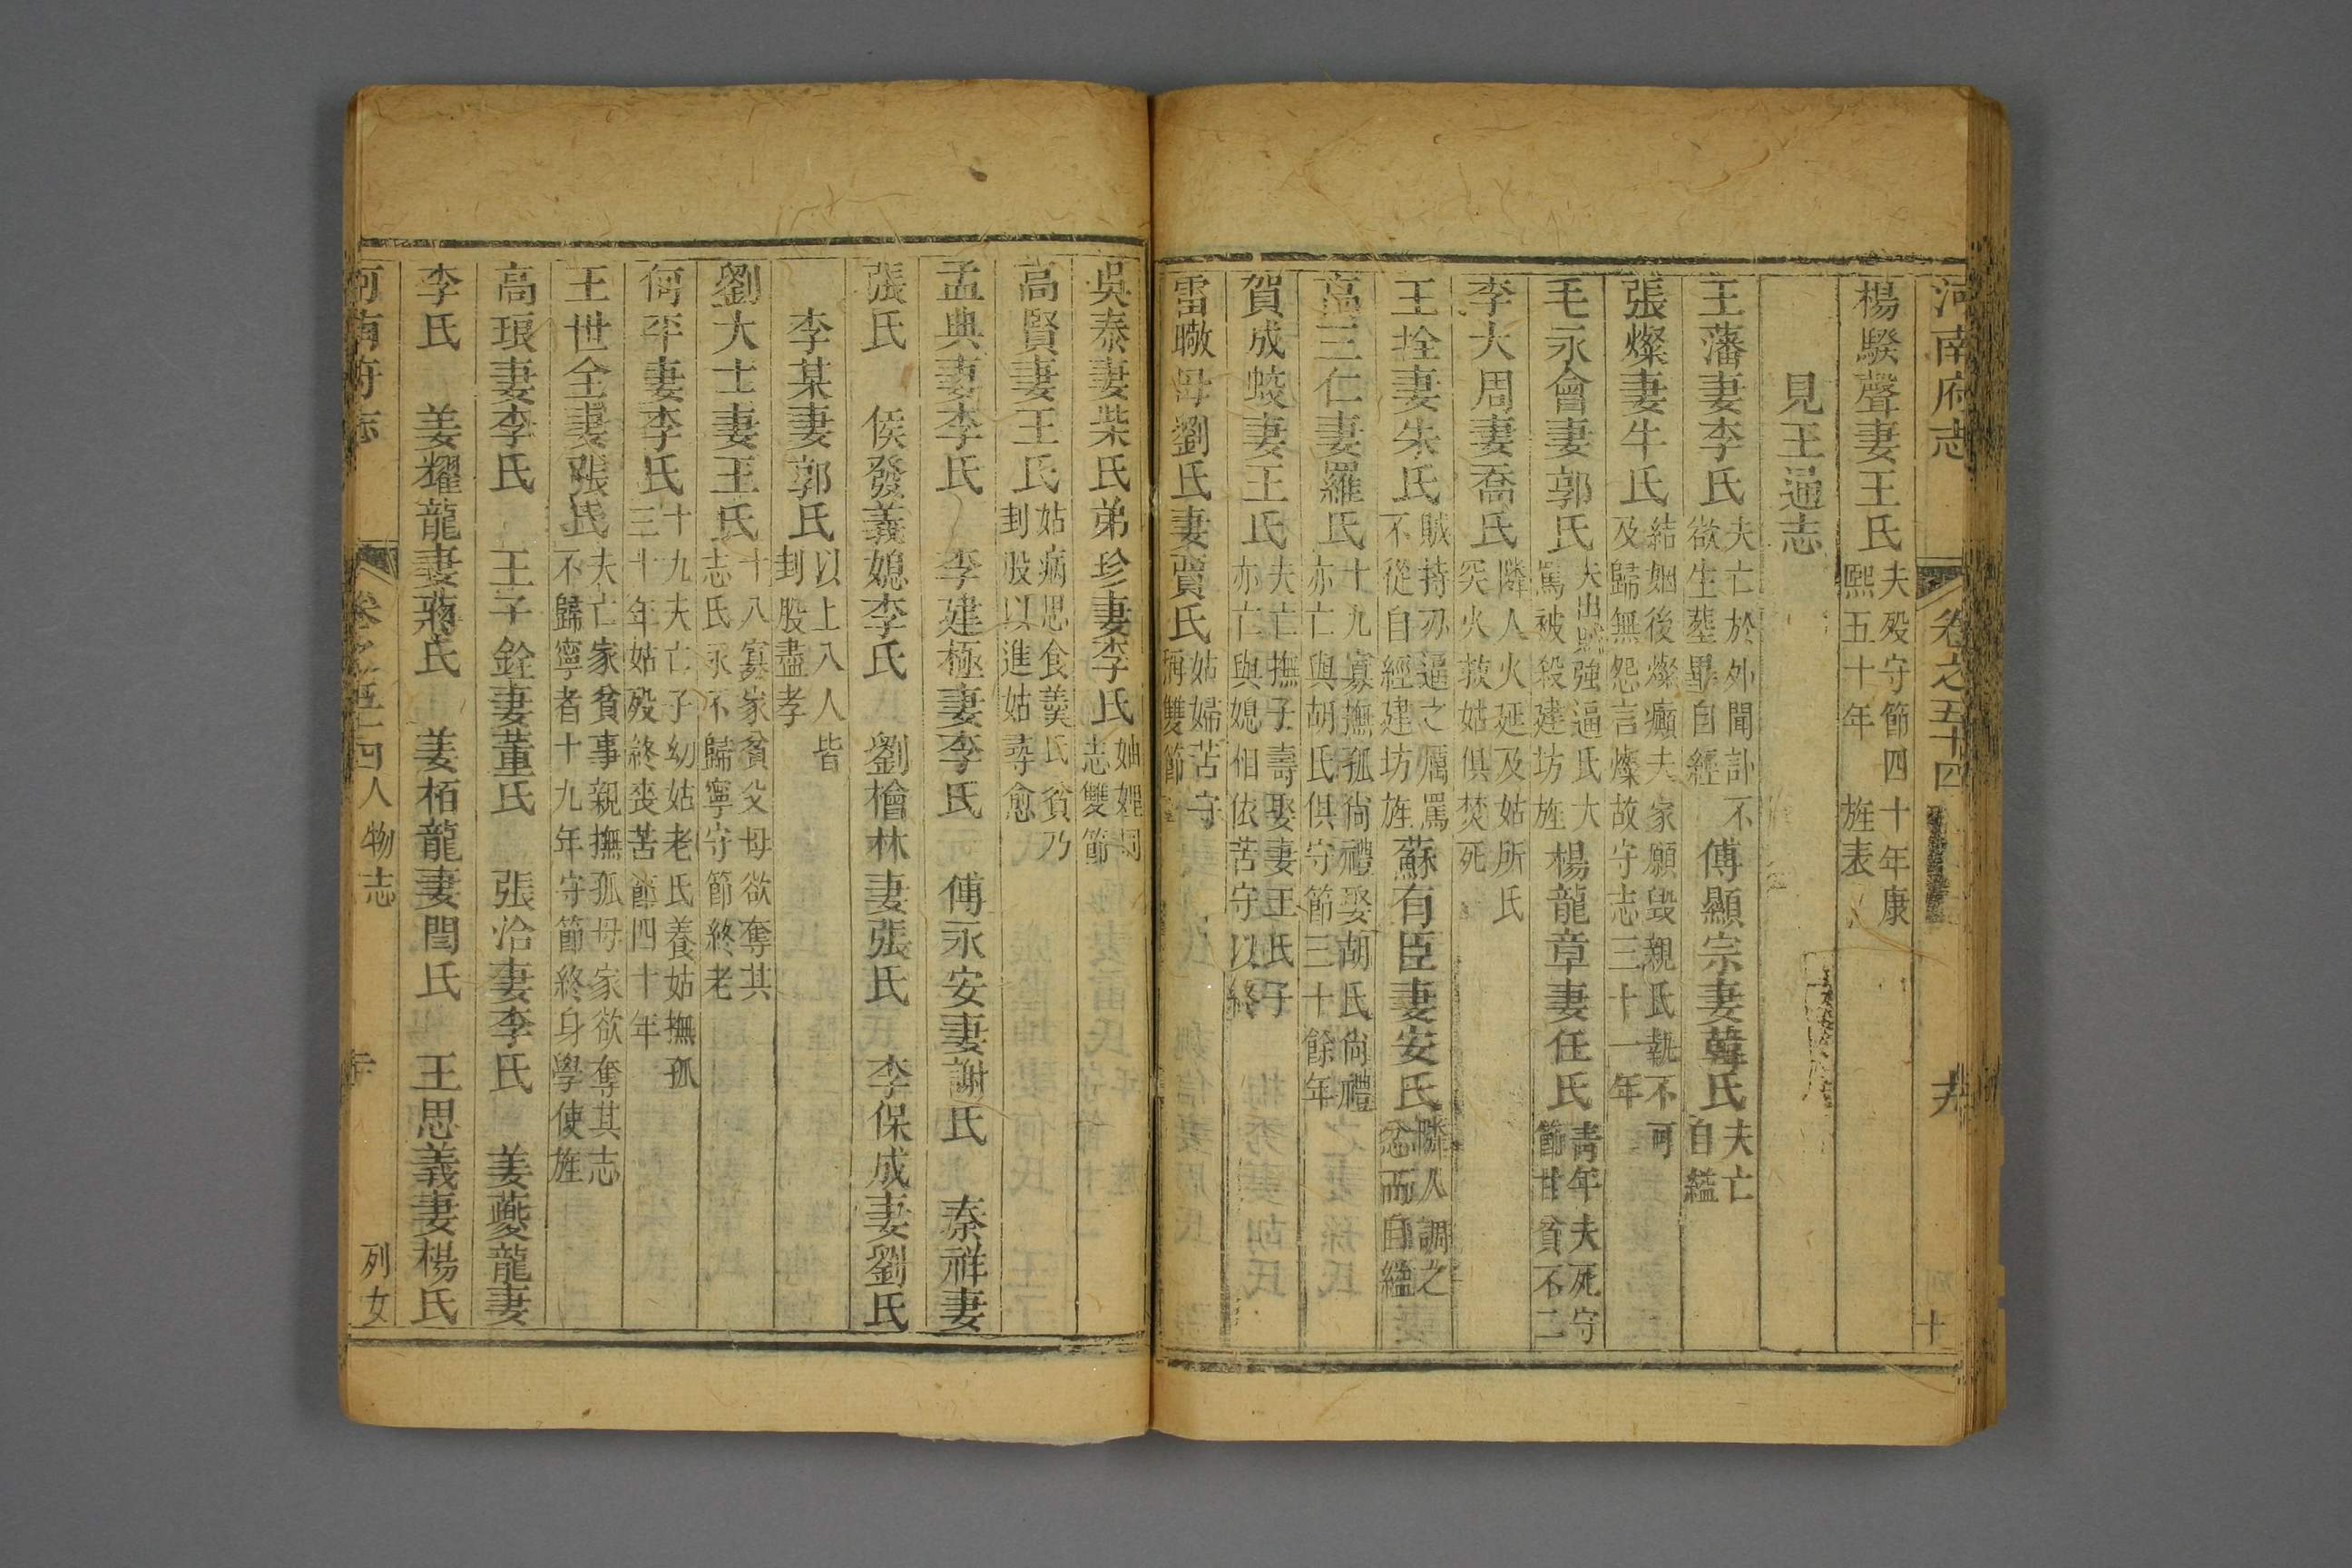 河南府志 卷之五十四
楊騤聲妻王氏 夫歿守節四十年康熙五十年旌表
見王通志
王藩妻李氏 夫亡於外聞訃不欲生塟畢自經 傅顯宗妻韓氏 夫亡自縊
張燦妻牛氏 結姻後燦癲夫家願毀親氏執不可及歸無怨言燦故守志三十一年
毛永會妻郭氏 夫出賊強逼氏大罵被殺建坊旌 楊龍章妻任氏 青年夫死守節甘貧不二
李大周妻喬氏 隣人火延及姑所氏突火救姑俱焚死
王拴妻朱氏 賊持刃逼之厲罵不從自經建坊旌 蘇有臣妻安氏 隣人調之忿而自縊
高三仁妻羅氏 十九寡撫孤尙禮娶胡氏尙禮亦亡與胡氏俱守節三十餘年
賀成蛟妻王氏 夫亡撫子壽娶妻王氏子亦亡與媳相依苦守以終
雷暾母劉氏妻賈氏 姑婦苦守稱雙節
吳泰妻柴氏弟珍妻李氏 妯娌同志雙節
高賢妻王氏 姑病思食羹氏貧乃刲股以進姑尋愈
孟典妻李氏 李建極妻李氏 傅永安妻謝氏 秦祥妻
張氏 侯發義媳李氏 劉檜林妻張氏 李保成妻劉氏
李某妻郭氏 以上八人皆刲股盡孝
劉大士妻王氏 十八寡家貧父母欲奪其志氏永不歸寧守節終老
何平妻李氏 十九夫亡子幼姑老氏養姑撫孤三十年姑歿終喪苦節四十年
王世全妻張氏 夫亡家貧事親撫孤母家欲奪其志不歸寧者十九年守節終身學使旌
高琅妻李氏 王子銓妻董氏 張洽妻李氏 姜夔龍妻
李氏 姜耀龍妻蔣氏 姜栢龍妻閆氏 王思義妻楊氏
河南府志 卷之五十四人物志 列女